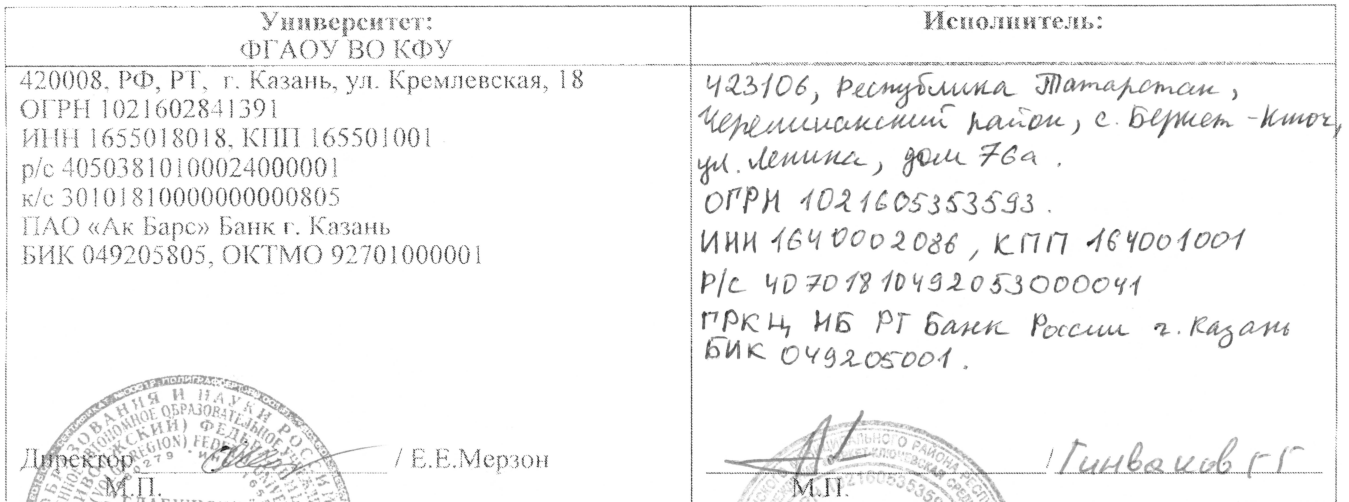 Университет:
ФГАОУ ВО КФУ
420008, РФ, РТ, г. Казань, ул. Кремлевская, 18
ОГРН 1021602841391
ИНН 1655018018, КПП 165501001
р/с 40503810100024000001
к/с 30101810000000000805
ПАО «Ак Барс» Банк г. Казань
БИК 049205805, ОКТМО 92701000001
Директор / Е.Е.Мерзон
М.П.
Исполнитель:
423106, Республика Татарстан,
Черемшанский район, с. Беркет-Ключ,
ул. Ленина, дом 76а.
ОГРН 1021605353593.
ИНН 1640002086, КПП 164001001
Р/с 40701810492053000041
ГРКЦ НБ РТ Банк России г. Казань
БИК 049205001.
М.П.